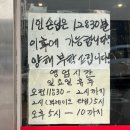 1인 손님은 12시30분
이후에 가능합니다
양해 부탁드립니다
영업시간
일요일 휴무
오전11:30 - 2시까지
2시(브레이크 타임) 5시
오후 5시 - 10까지